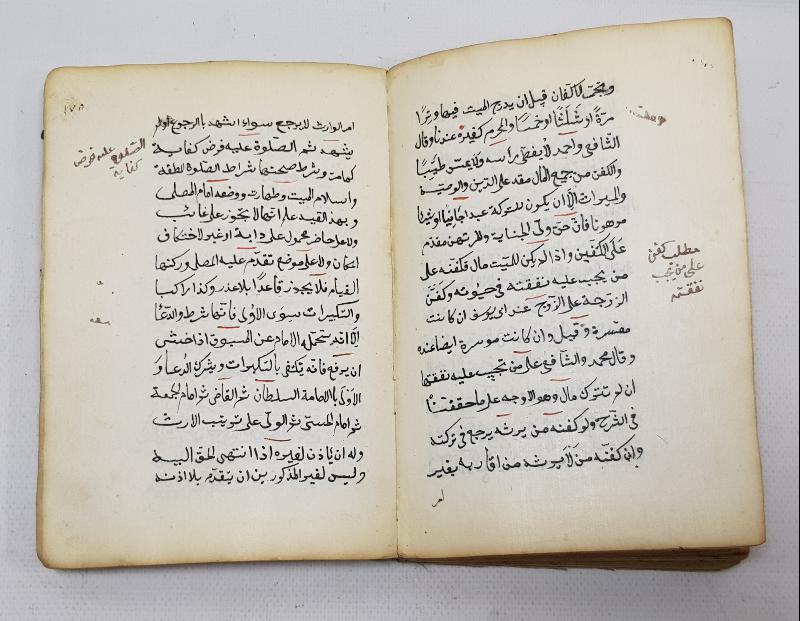 وتجمر الأكفان قبل ان يدرج الميت فيها وترًا
مرة او ثلثًا او خمسًا والمحرم كغيره عندنا وقال
الشافعي واحمد لا يغطى رأسه ولا يمس طيبًا
والكفن من جميع المال مقدم على الدين والوصية
والميراث الا ان يكون للتركة عبدا جانيًا او شيئًا
مرهونا فان حق ولي الجناية والمرتهن مقدم
على الكفن واذا لم يكن للميت مال فكفنه على
من يجب عليه نفقته في حيوته وكفن
الزوجة على الزوج عند ابى يوسف ان كانت
معسرة وقيل وان كانت موسرة ايضا عنده
وقال محمد والشافعي على من تجب عليه نفقتها
ان لم تترك مال وهو الاوجه على ما حققتنا
في الشرح ولو كفنه من يرثه يرجع في تركته
وان كفنه من لا يرثه من اقاربه بغير
امر
مطلب كفن
على من تجب
نفقته
امر الوارث لا يرجع سواء اشهد بالرجوع او لم
يشهد ثم الصلوة عليه فرض كفاية
كما مت وشرط صحتها شرائط الصلوة المطلقة
واسلام الميت وطهارته ووضعه امام المصلى
وبهذا القيد علم انها لا تجوز على غائب
ولا على حاضر محمول على دابة او غير لاختلاف
المكان ولا على موضع تقدم عليه المصلى وركنها
القيام فلا يجوز قاعدًا بلا عذر وكذا راكبا
والتكبيرات سوى الاولى فانها شرط والدعا
الا انه يتحمله الامام عن المسبوق اذا خشى
ان يرفع فانه يكتفى بالتكبيرات ويترك الدعا و
الاولى بالامامة السلطان ثم القاضى ثم امام الجمعة
ثم امام الحى ثم الولى على ترتيب الارث
وله ان يأذن لغيره اذا انتهى الحق اليه
وليس لغير المذكورين ان يتقدم بلا اذنه
الصلوة عليه فرض
كفاية